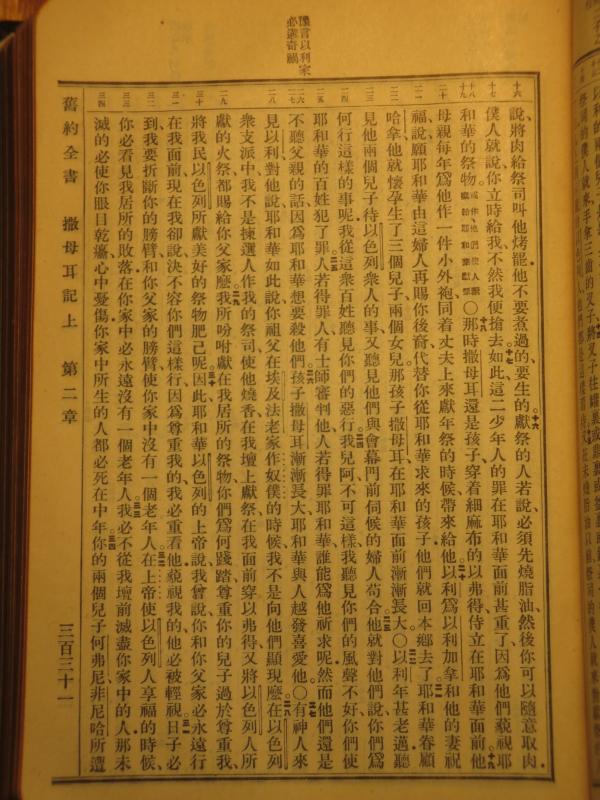 豫言以利家
必遭奇禍
十六
十七
十八
十九
二十
二一
二二
二三
二四
二五
二六
二七
二八
二九
三十
三一
三二
三三
三四
說、將肉給祭司叫他烤罷、他不要煮過的、要生的。獻祭的人若說、必須先燒脂油、然後你可以隨意取肉、
僕人就說、你立時給我、不然我便搶去。如此這二少年人的罪在耶和華面前甚重了、因爲他們藐視耶
和華的祭物。○那時撒母耳還是孩子、穿着細麻布的以弗得、侍立在耶和華面前。他
母親每年爲他作一件小外袍、同着丈夫上來獻年祭的時候帶來給他。以利爲以利加拿和他的妻祝
福、說、願耶和華由這婦人再賜你後裔、代替你從耶和華求來的孩子。他們就回本鄉去了。耶和華眷顧
哈拿、他就懷孕生了三個兒子、兩個女兒。那孩子撒母耳在耶和華面前漸漸長大。○以利年甚老邁、聽
見他兩個兒子待以色列衆人的事、又聽見他們與會幕門前伺候的婦人苟合、他就對他們說、你們爲
何行這樣的事呢、我從這衆百姓聽見你們的惡行。我兒阿、不可這樣、我聽見你們的風聲不好、你們使
耶和華的百姓犯了罪。人若得罪人、有士師審判他、人若得罪耶和華、誰能爲他祈求呢。然而他們還是
不聽父親的話、因爲耶和華想要殺他們。孩子撒母耳漸漸長大、耶和華與人越發喜愛他。○有神人來
見以利、對他說、耶和華如此說、你祖父在埃及法老家作奴僕的時候、我不是向他們顯現麽。在以色列
衆支派中、我不是揀選人作我的祭司、使他燒香、在我壇上獻祭、在我面前穿以弗得、又將以色列人所
獻的火祭都賜給你父家麽。我所吩咐獻在我居所的祭物、你們爲何踐踏、尊重你的兒子過於尊重我、
將我民以色列所獻美好的祭物肥己呢。因此耶和華以色列的上帝說、我曾說、你和你父家必永遠行
在我面前、現在我卻說、決不容你們這樣行、因爲尊重我的、我必重看他、藐視我的、他必被輕視。日子必
到、我要折斷你的膀臂、和你父家的膀臂、使你家中沒有一個老年人。在上帝使以色列人享福的時候、
你必看見我居所的敗落、在你家中必永遠沒有一個老年人。我必不從我壇前滅盡你家中的人、那未
滅的必使你眼目乾癟、心中憂傷、你家中所生的人都必死在中年。你的兩個兒子何弗尼非尼哈所遭
舊約全書 撒母耳記上 第二章 三百三十一